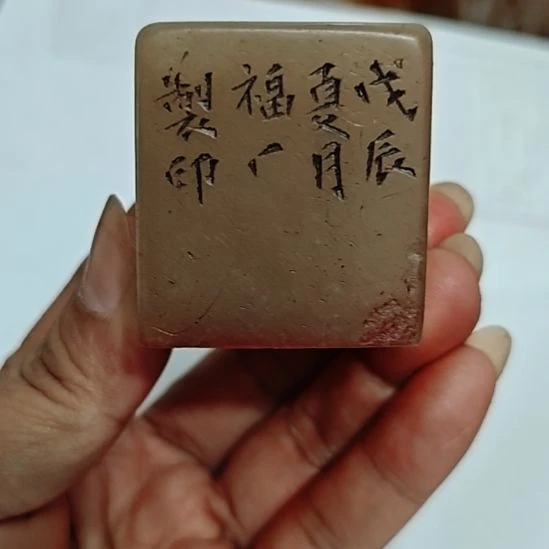 戊辰
夏月
福厂
製印